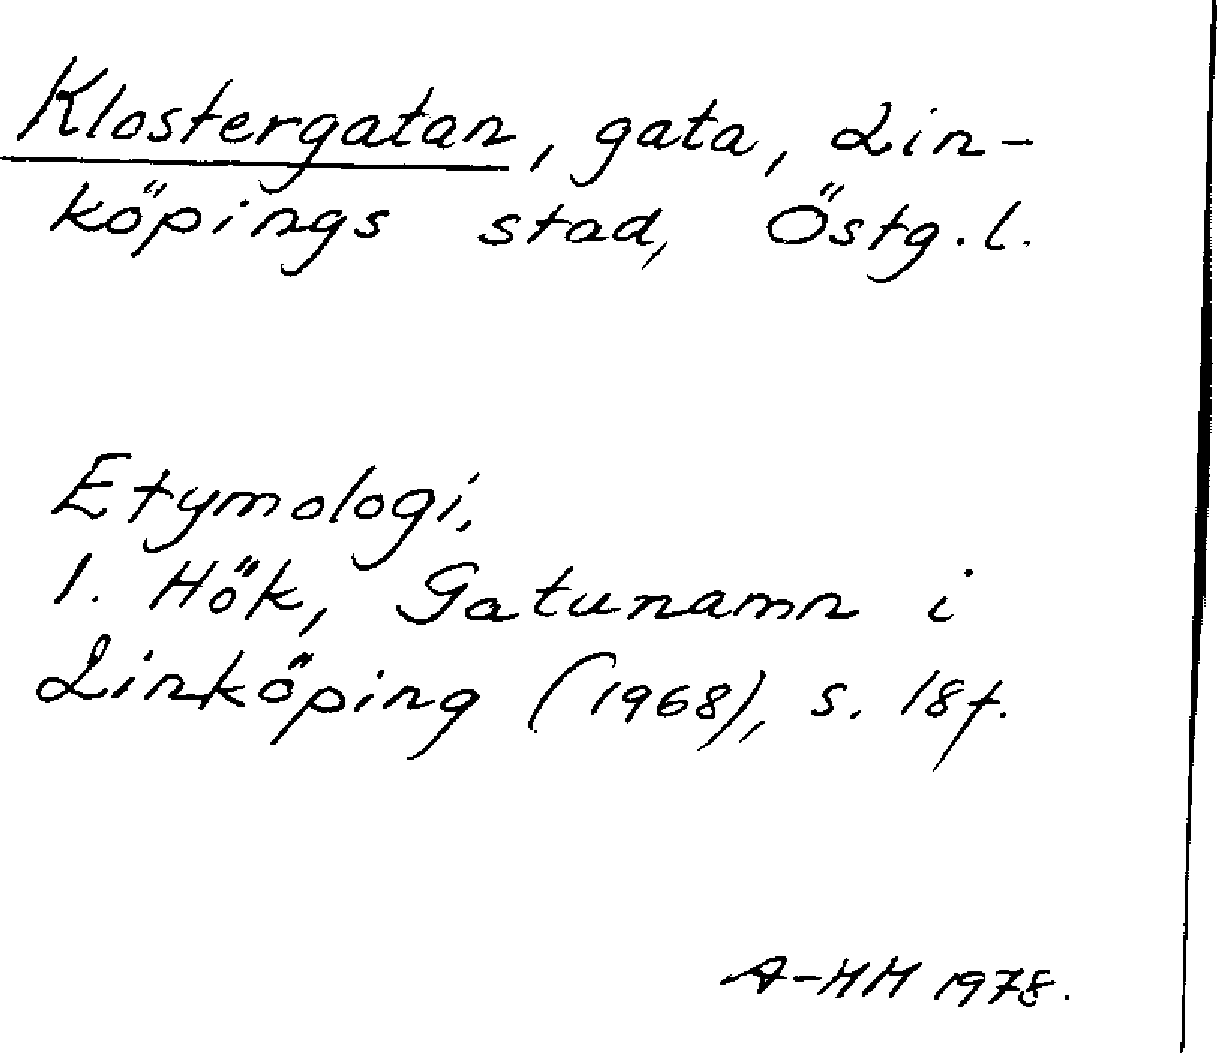 Klostergatan, gata, Lin-
köpings stad, Östg.l.
Etymologi,
1. Hök, Gatunamn i
Linköping (1968), s. 18f.
A-HM 1978.